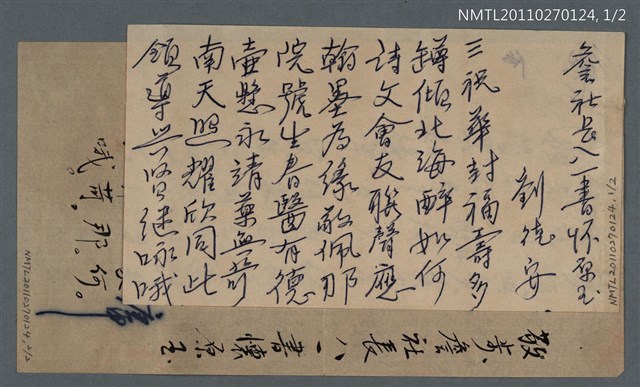 NMTL20110270124, 1/2
詹社長八一書懷原玉
劉德安
三祝華封福壽多
罇傾北海醉如何
詩文會友聯聲應
翰墨為緣敬佩那
院號生春醫有德
壺懸永靖藥無苛
南天照耀欣同此
領導興賢继咏哦
NMTL20110270124, 1/2
詹社長八一書懷原玉
哦苛。那。何。
NMTL20110270124, 2/2